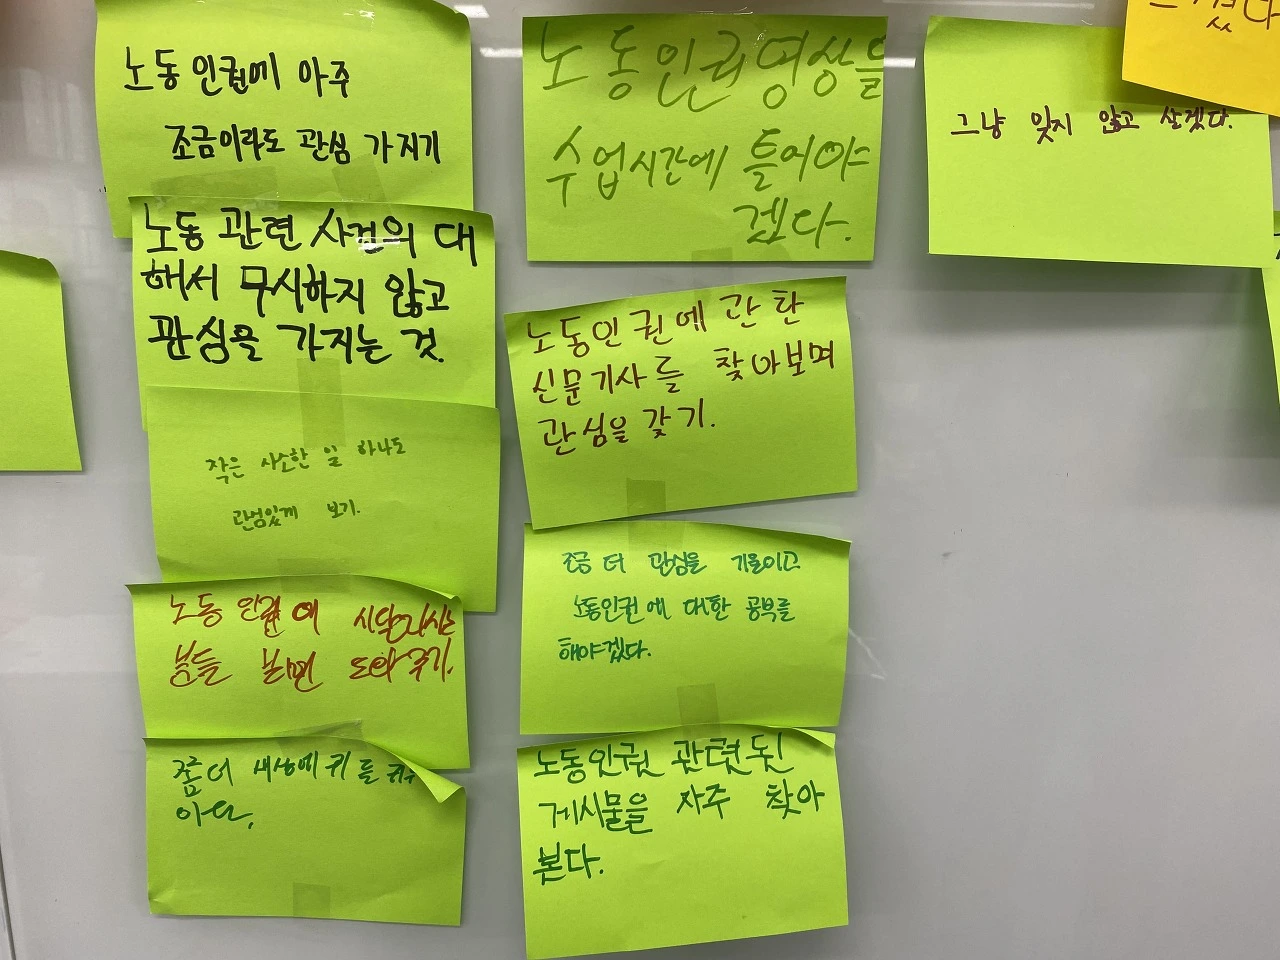 노동인권에 아주
조금이라도 관심 가지기
노동 관련 사건의 대
해서 무시하지 않고
관심을 가지는 것.
작은 사소한 일 하나도
관심있게 보기.
노동 인권에
분들 보면 도와주기.
좀 더 세상에 귀를
노동인권영상을
수업시간에 틀어야
겠다.
노동인권에 관한
신문기사를 찾아보며
관심을 갖기.
조금 더 관심을 기울이고
노동인권에 대한 공부를
해야겠다.
노동인권 관련된
게시물을 자주 찾아
본다.
그냥 잊지 않고 살겠다.